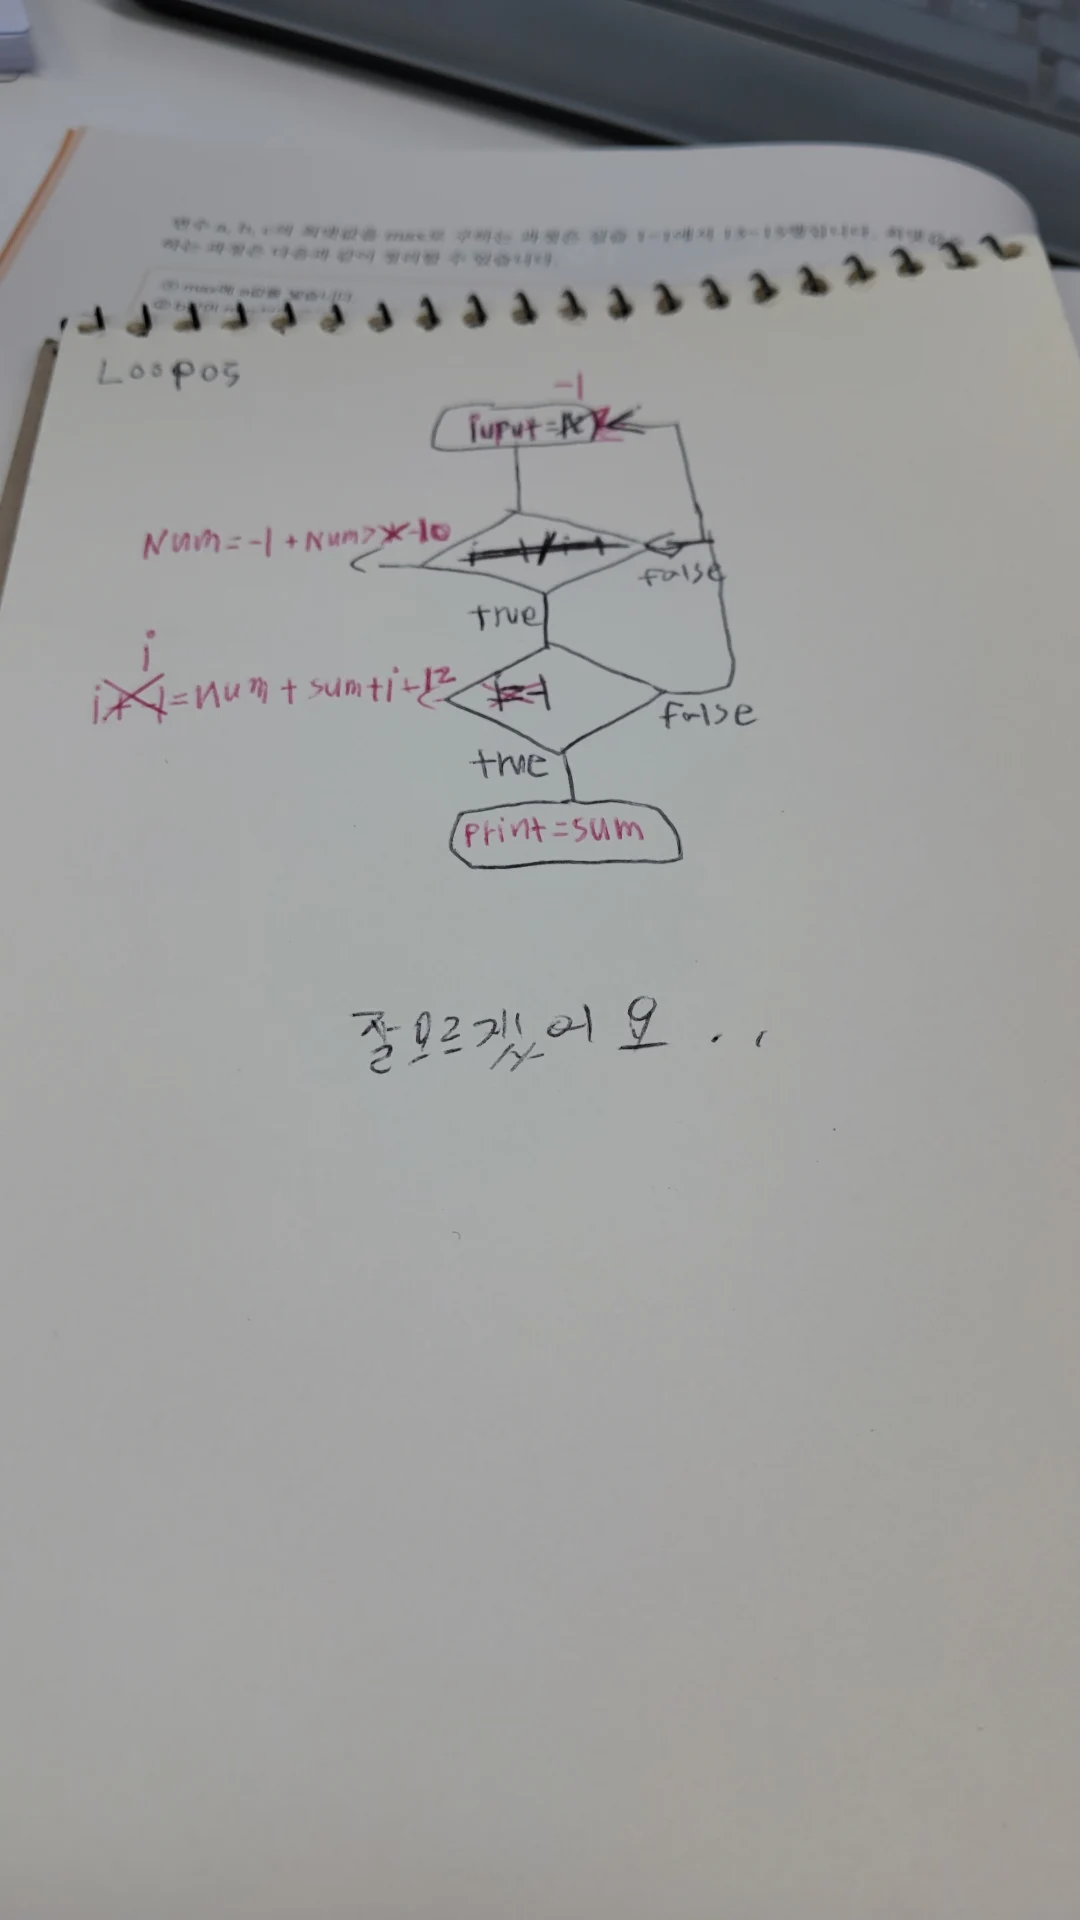 변수 a, b, c의 최댓값을 max로 구하는 과정은 실습 1-1에서 13~15행입니다. 최댓값을
하는 과정은 다음과 같이 정리할 수 있습니다.
① max에 a값을 넣습니다
Loopos
-1
iuput =
Num=-1 + Num> -10
false
true
i
=num + sum+i+12
false
true
print=sum
잘모르겠어요 . .